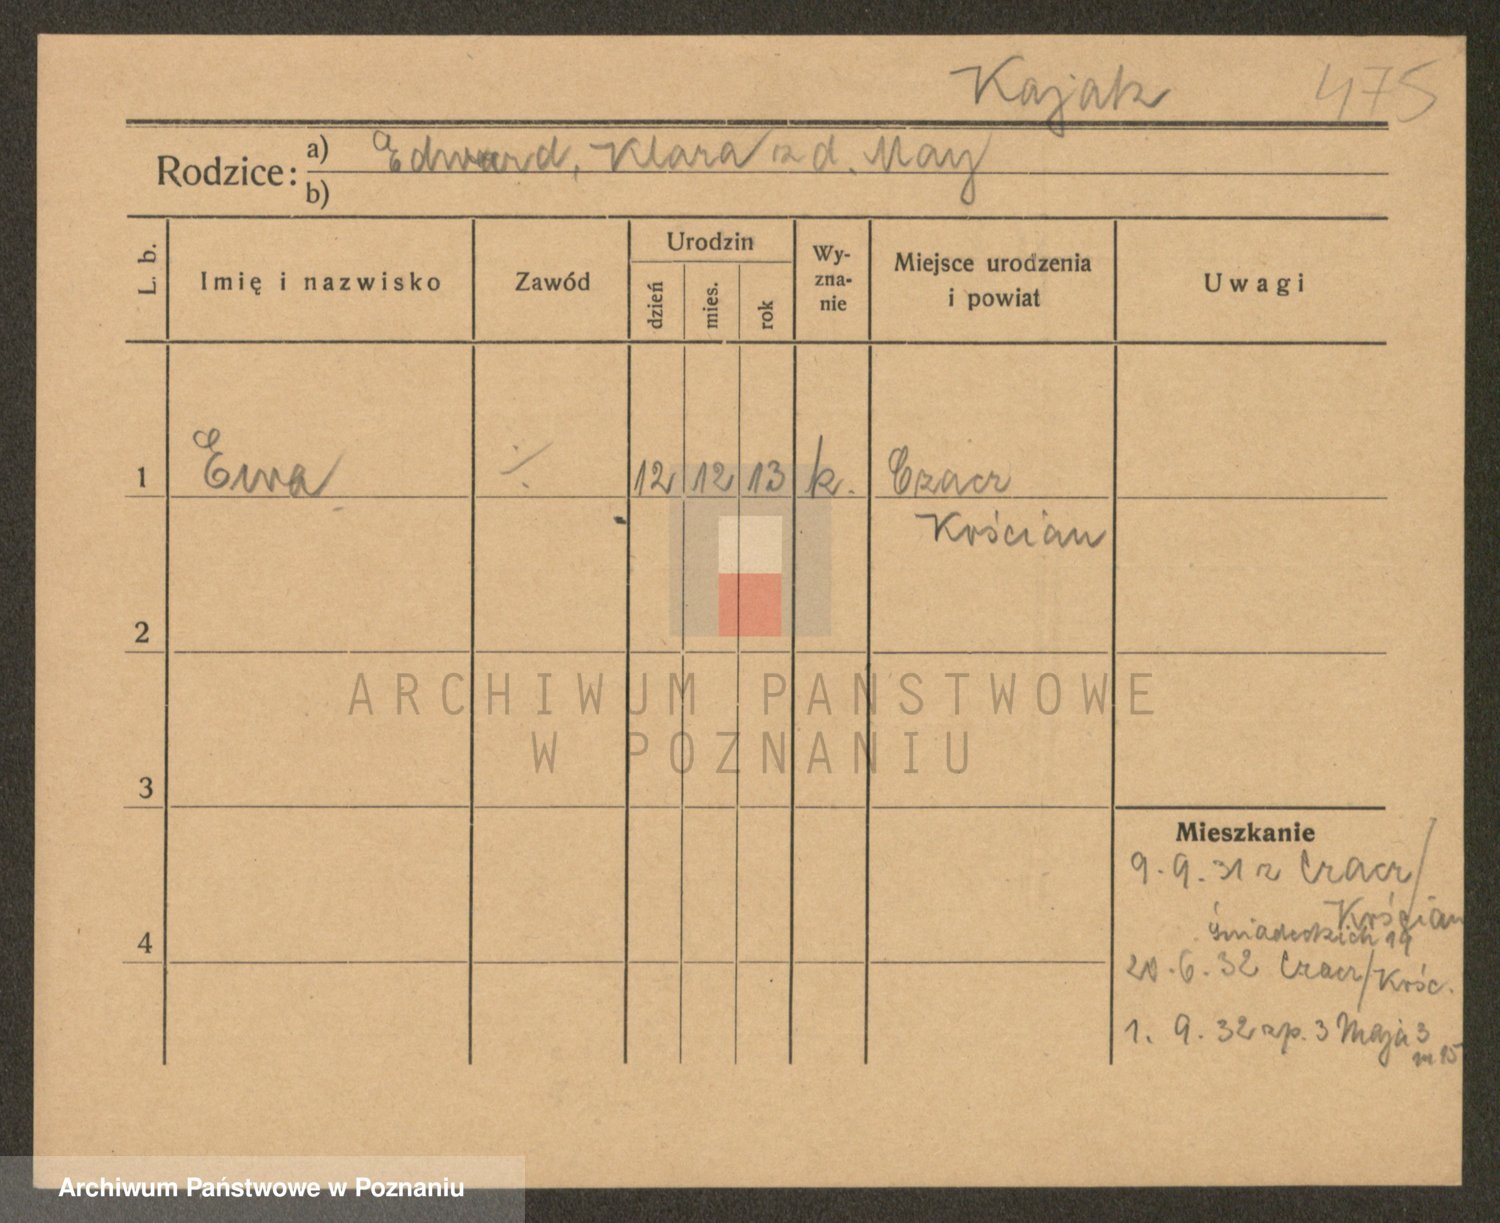 Kajak 475
Rodzice: a) Edward, Klara z d. May
b)
L. b. Imię i nazwisko Zawód Urodzin dzień mies. rok Wy-zna-nie Miejsce urodzenia i powiat Uwagi
1 Ewa ./. 12 12 13 k. Czacz
Kościan
2
ARCHIWUM PAŃSTWOWE
W POZNANIU
3
Mieszkanie
9.9.31 z Czacz/
Kościan
4 Śniadeckich 19
20.6.32 Czacz/Kośc.
1.9.32 zp. 3 Maja 3
Archiwum Państwowe w Poznaniu